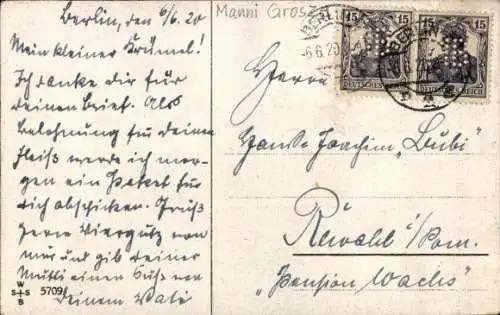 Berlin, den 6/6. 20
Mein kleiner Krümel!
Ich danke dir für
deinen Brief. Als
Belohnung für deinen
Fleiß werde ich mor-
gen ein Paket für
dich abschicken. Grüß
Herrn Viergutz von
mir und gib deiner
Mutti einen Kuß von
deinem Vati
W
S S
B
5709
Manni Grosz
BERLIN
-6.6.20
15 15
15 15
DEUTSCHES REICH
DEUTSCHES REICH
BERLIN
Herrn
Hans Joachim „Bubi"
Rewahl i/Pom.
„Pension Wachs"